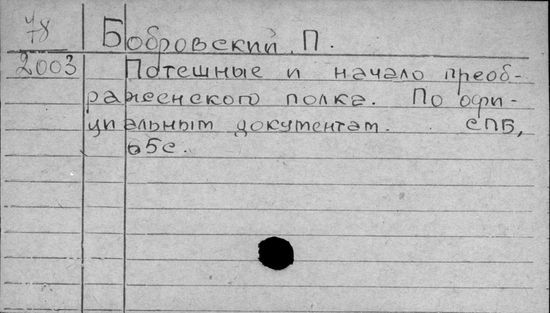 78 Бобровский П.
2003 Потешные и начало преоб-
раженского полка. По офи-
циальным документам. СПБ,
65с.